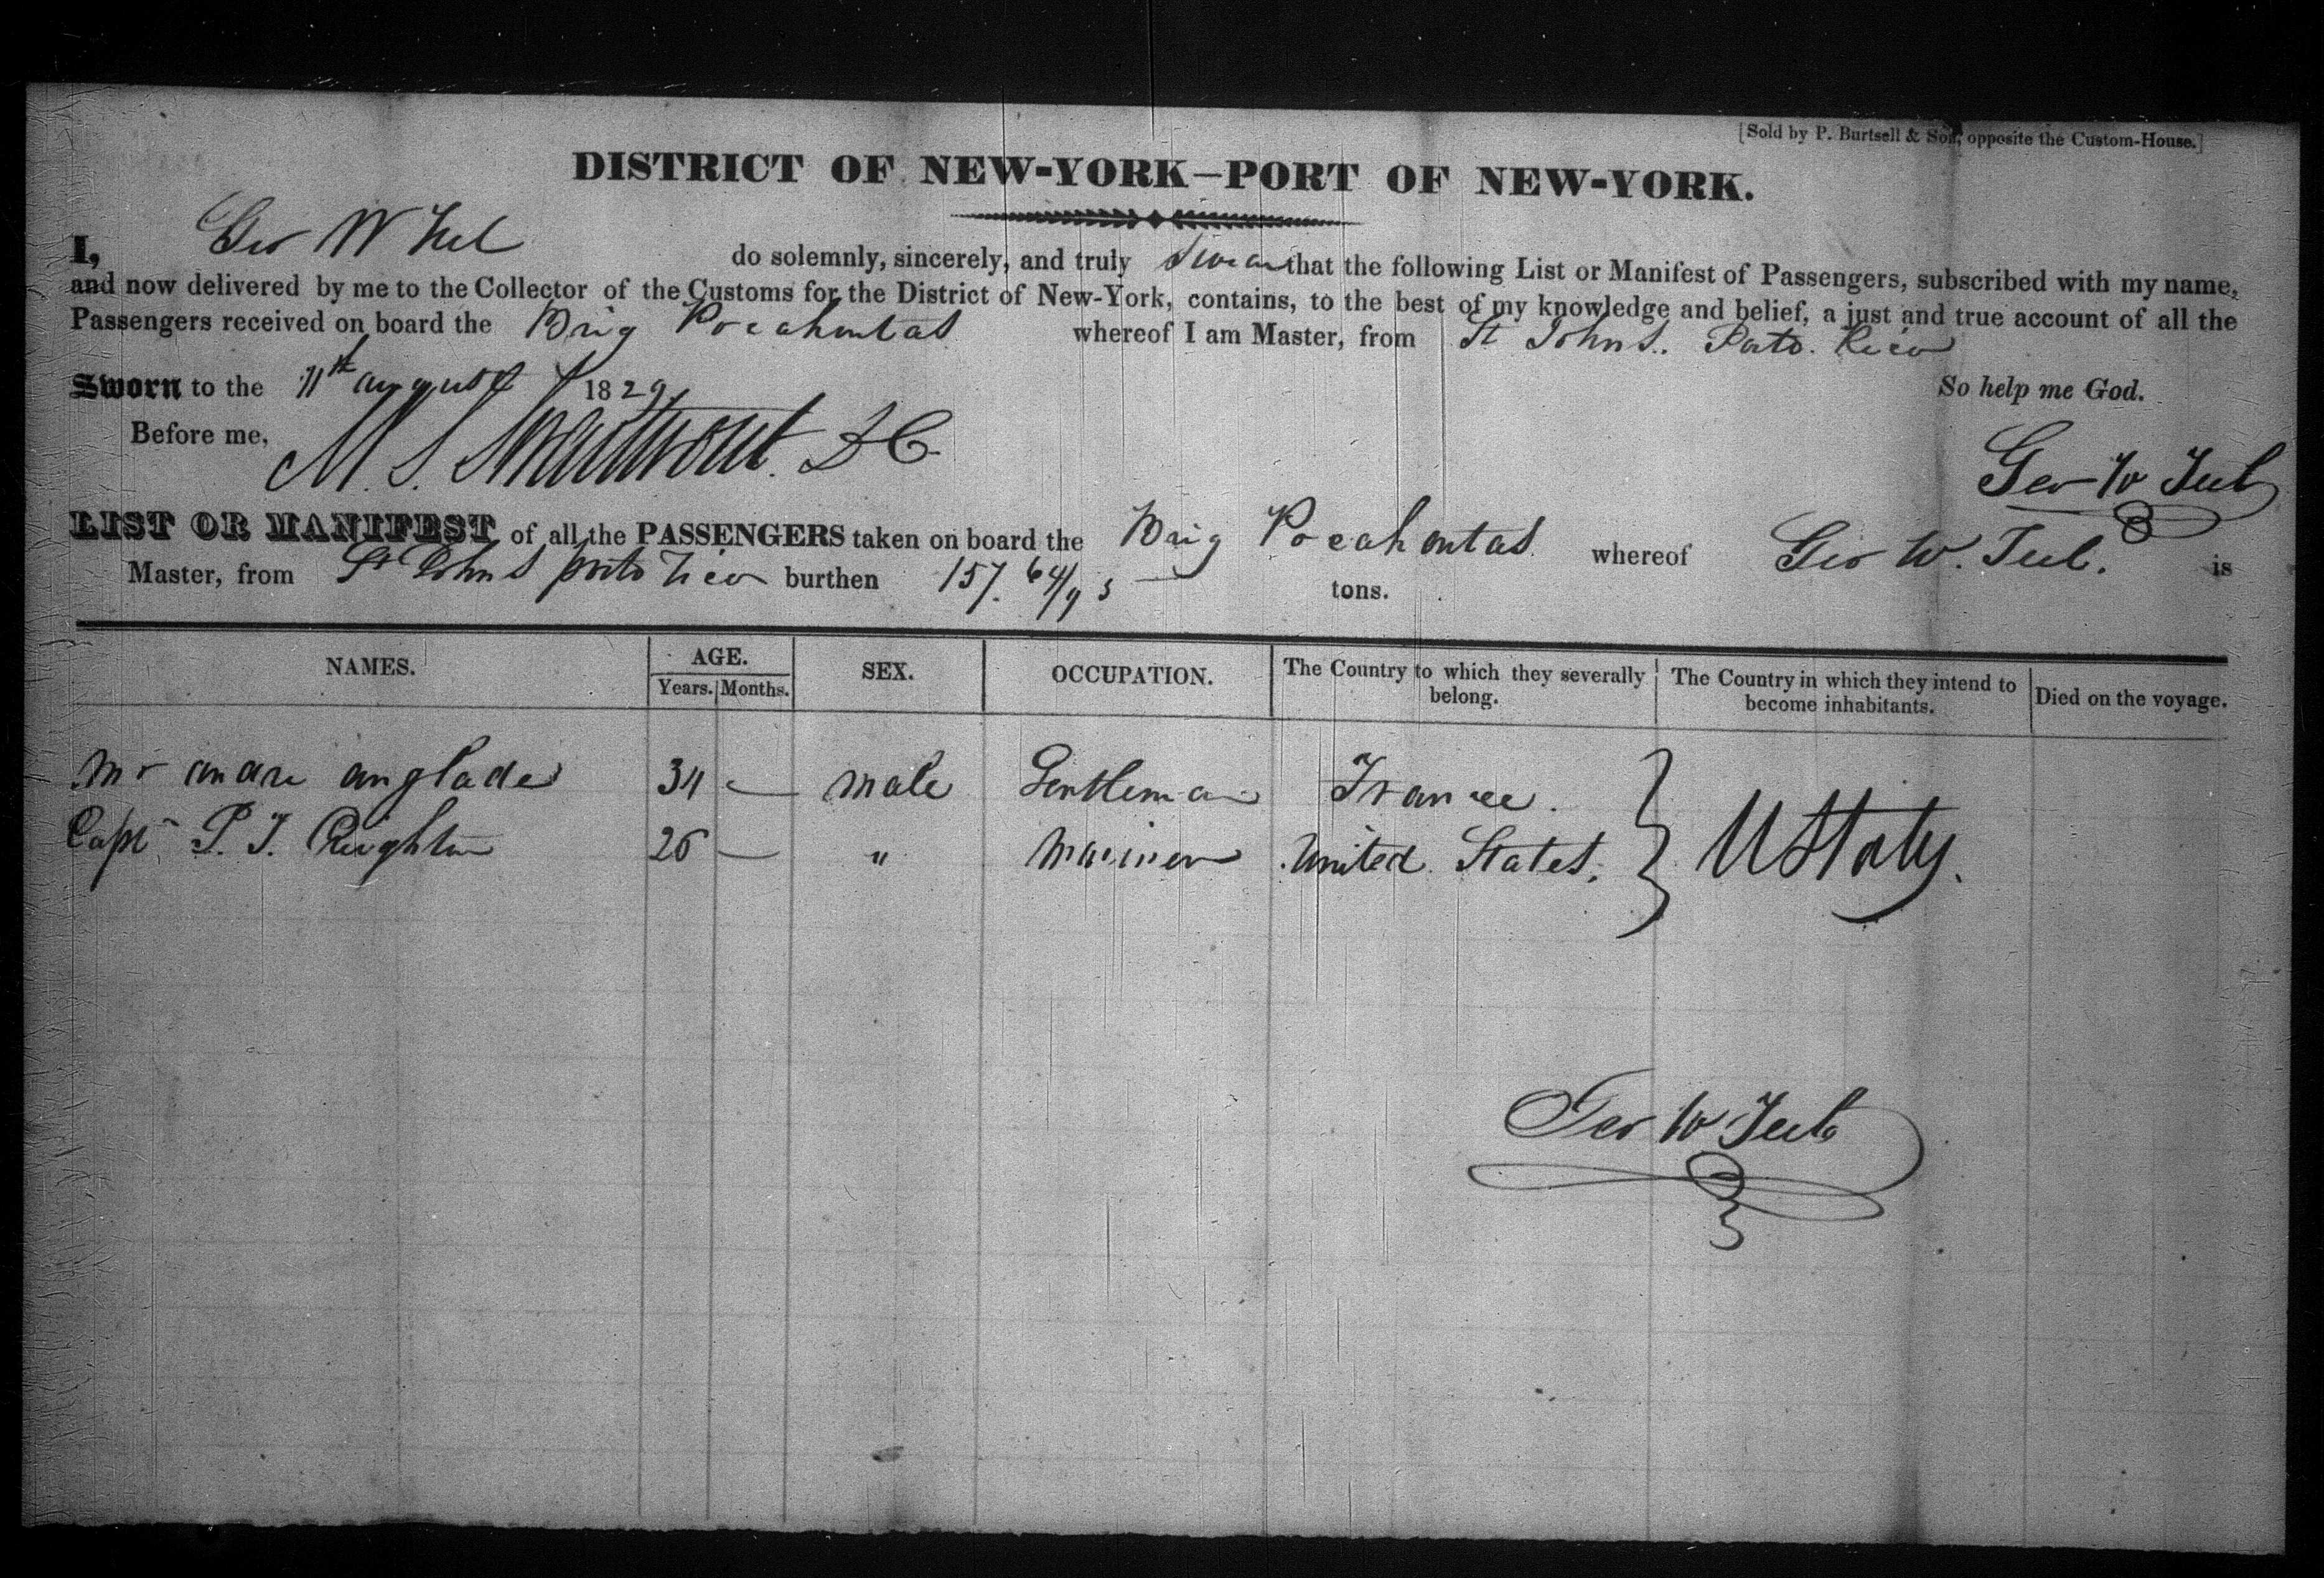 [Sold by P. Burtsell & Son, opposite the Custom-House.]
DISTRICT OF NEW-YORK—PORT OF NEW-YORK.
I, Geo W Teel do solemnly, sincerely, and truly Swear that the following List or Manifest of Passengers, subscribed with my name,
and now delivered by me to the Collector of the Customs for the District of New-York, contains, to the best of my knowledge and belief, a just and true account of all the
Passengers received on board the Brig Pocahontas whereof I am Master, from St Johns. Porto. Rico
Sworn to the 11th august 1829 So help me God.
Before me, M. S. Swartwout. D C
Geo W Teel
LIST OR MANIFEST of all the PASSENGERS taken on board the Brig Pocahontas whereof Geo W. Teel. is
Master, from St Johns porto rico burthen 157. 64/95 tons.
NAMES. AGE. SEX. OCCUPATION. The Country to which they severally belong. The Country in which they intend to become inhabitants. Died on the voyage.
Years. Months.
Mr andre anglade 34 — Male Gentleman France.
Capt P. T. Creighton 26 — " Mariner United States. } U States.
Geo W Teel